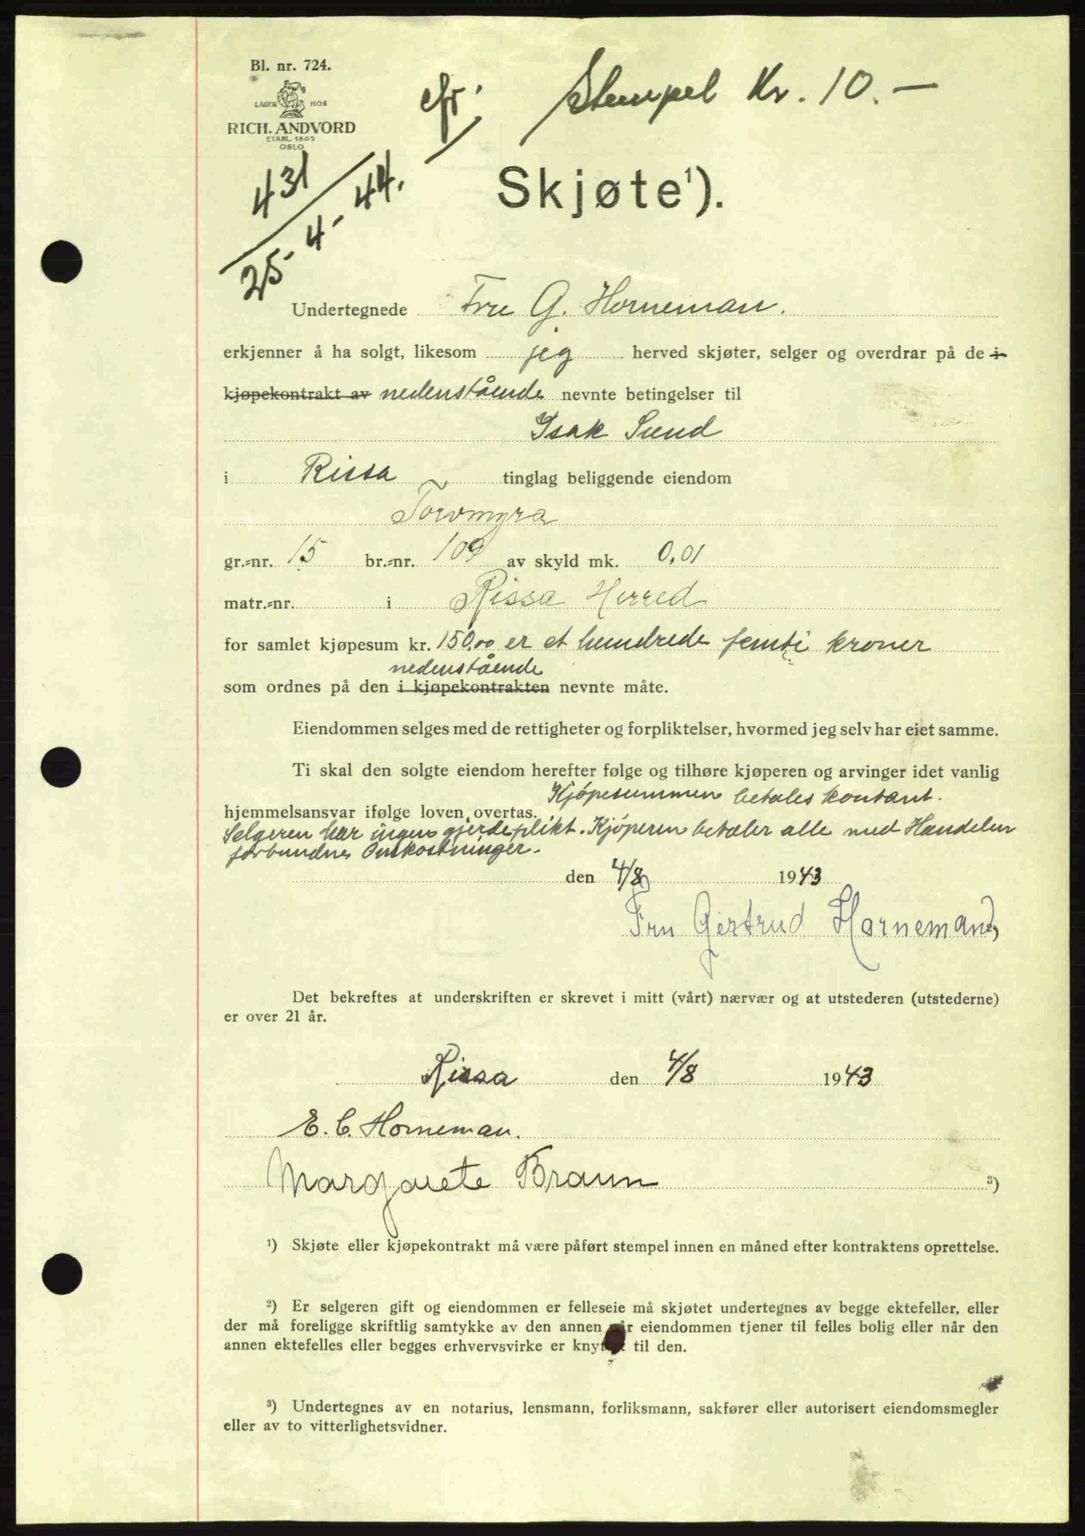 Bl. nr. 724.
LAGER HOS
RICH. ANDVORD
ETABL. 1865
OSLO
cfr.
Stempel Kr. 10.-
431
25-4-44.
Skjøte¹).
Undertegnede Fru G. Horneman.
erkjenner å ha solgt, likesom jeg herved skjøter, selger og overdrar på de i
kjøpekontrakt av nedenstående nevnte betingelser til
Isak Sund
i Rissa tinglag beliggende eiendom
Torvmyra
gr.-nr. 15 br.-nr. 109 av skyld mk. 0,01
matr.-nr. i Rissa Herred
for samlet kjøpesum kr. 150,00 er et hundrede femti kroner
nedenstående
som ordnes på den i kjøpekontrakten nevnte måte.
Eiendommen selges med de rettigheter og forpliktelser, hvormed jeg selv har eiet samme.
Ti skal den solgte eiendom herefter følge og tilhøre kjøperen og arvinger idet vanlig
hjemmelsansvar ifølge loven overtas. Kjøpesummen betales kontant.
Selgeren har ingen gjerdeplikt. Kjøperen betaler alle med Handelen
forbundne Omkostninger.
den 4/8 1943
Fru Gertrud Hornemann
Det bekreftes at underskriften er skrevet i mitt (vårt) nærvær og at utstederen (utstederne)
er over 21 år.
Rissa den 4/8 1943
E. C. Horneman.
Margarete Braun ³)
¹) Skjøte eller kjøpekontrakt må være påført stempel innen en måned efter kontraktens oprettelse.
²) Er selgeren gift og eiendommen er felleseie må skjøtet undertegnes av begge ektefeller, eller
der må foreligge skriftlig samtykke av den annen når eiendommen tjener til felles bolig eller når den
annen ektefelles eller begges erhvervsvirke er knyttet til den.
³) Undertegnes av en notarius, lensmann, forliksmann, sakfører eller autorisert eiendomsmegler
eller av to vitterlighetsvidner.